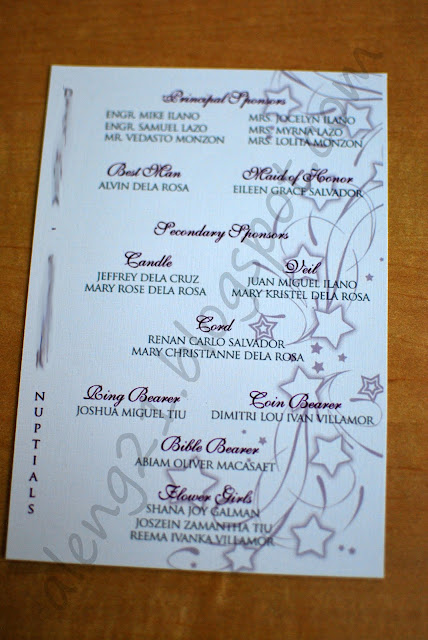 Principal Sponsors
ENGR. MIKE ILANO
ENGR. SAMUEL LAZO
MR. VEDASTO MONZON
MRS. JOCELYN ILANO
MRS. MYRNA LAZO
MRS. LOLITA MONZON
Best Man
ALVIN DELA ROSA
Maid of Honor
EILEEN GRACE SALVADOR
Secondary Sponsors
Candle
JEFFREY DELA CRUZ
MARY ROSE DELA ROSA
Veil
JUAN MIGUEL ILANO
MARY KRISTEL DELA ROSA
Cord
RENAN CARLO SALVADOR
MARY CHRISTIANNE DELA ROSA
Ring Bearer
JOSHUA MIGUEL TIU
Coin Bearer
DIMITRI LOU IVAN VILLAMOR
Bible Bearer
ABIAM OLIVER MACASAET
Flower Girls
SHANA JOY GALMAN
JOSZEIN ZAMANTHA TIU
REEMA IVANKA VILLAMOR
NUPTIALS